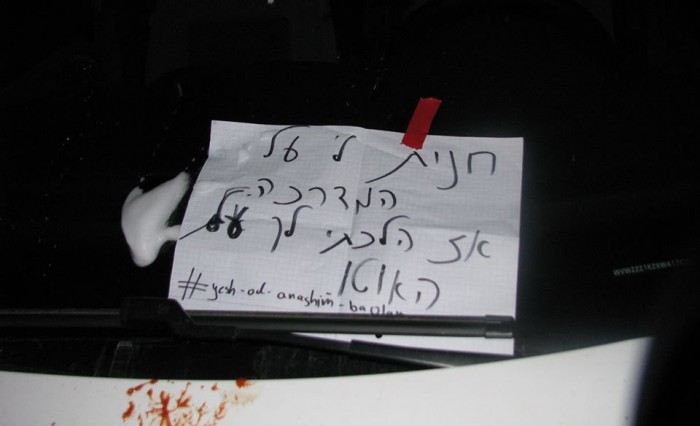 חנית לי על
המדרכה.
אז הלכתי לך על
האוטו
#yesh-od-anashim-baolam